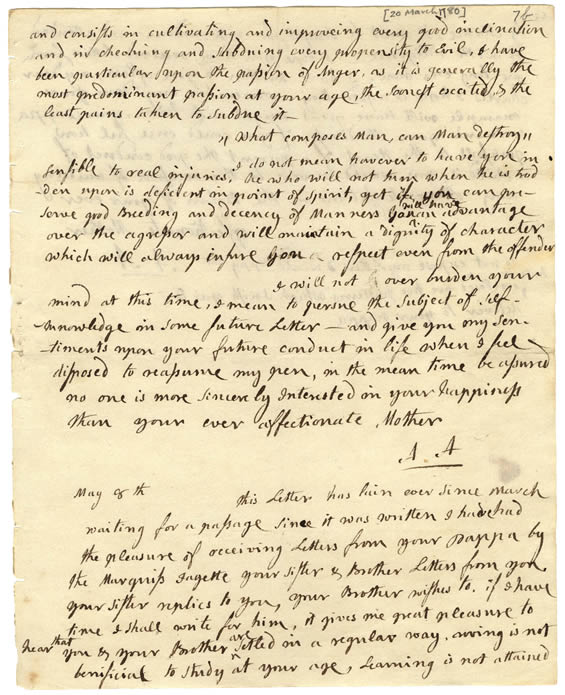 [20 March 1780] 7b
and consists in cultivating and improveing every good inclination
and in checking and subduing every propensity to Evil, I have
been particular upon the passion of Anger, as it is generally the
most predominant passion at your age, the soonest excited, & the
least pains taken to subdue it—
"What composes Man, can Man destroy"
I do not mean however to have you in-
sensible to real injuries, he who will not turn when he is trod-
den upon is deficient in point of spirit, yet if you can pre-
serve good Breeding and decency of Manners you will have an advantage
over the agressor and will maintain a dignity of character
which will always insure you a respect even from the offender
I will not over burden your
mind at this time, I mean to persue the subject of Self-
-knowledge in some future Letter — and give you my sen-
-timents upon your future conduct in life when I feel
disposed to reassume my pen, in the mean time be assured
no one is more sincerely Interested in your happiness
than your ever affectionate Mother
A. A
May 8th this Letter has lain ever since March
waiting for a passage since it was written I have had
the pleasure of receiving Letters from your pappa by
the Marquiss Fayette your sister & Brother Letters from you
your sister replies to you, your Brother wishes to. if I have
time I shall write for him, it gives me great pleasure to
hear that you & your Brother are setled in a regular way. roving is not
benificial to study at your age, Learning is not attained